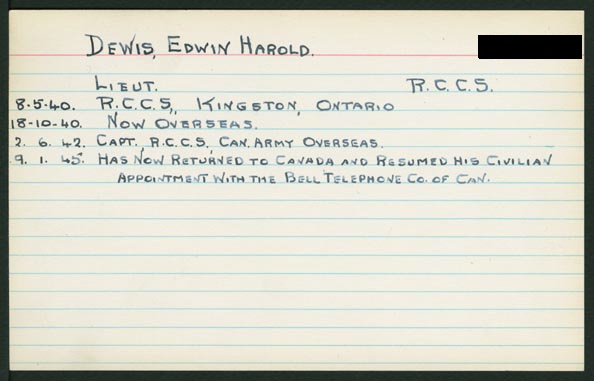 DEWIS, EDWIN HAROLD.
LIEUT. R.C.C.S.
8.5.40. R.C.C.S., KINGSTON, ONTARIO
18-10-40. NOW OVERSEAS.
2. 6. 42. CAPT., R.C.C.S., CAN. ARMY OVERSEAS.
9. 1. 45. HAS NOW RETURNED TO CANADA AND RESUMED HIS CIVILIAN
APPOINTMENT WITH THE BELL TELEPHONE CO. OF CAN.